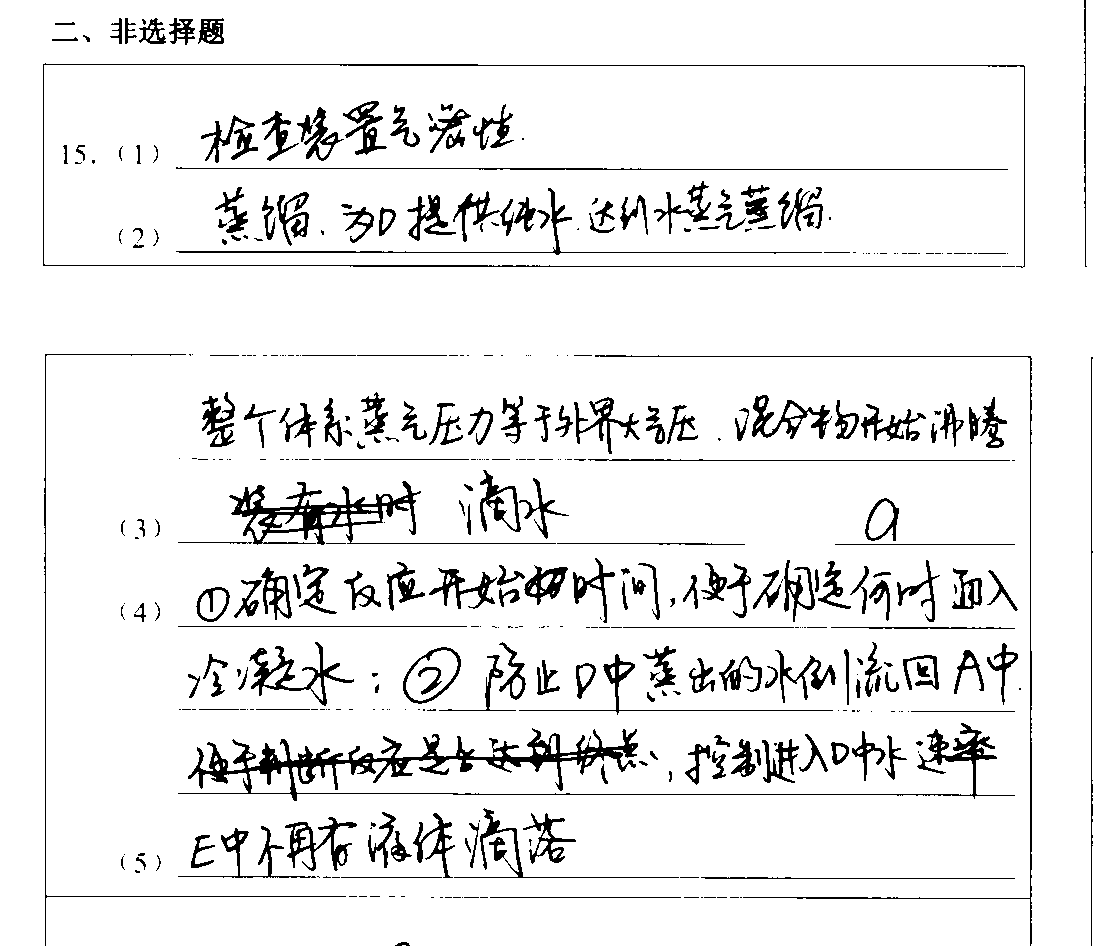 二、非选择题
15.（1） 检查装置气密性.
（2） 蒸馏. 为D提供纯水. 达到水蒸气蒸馏.
整个体系蒸气压力等于外界大气压. 混合物开始沸腾
（3） 装有水时 滴水 a
（4） ①确定反应开始的时间,便于确定何时通入
冷凝水；② 防止D中蒸出的水倒流回A中.
便于判断反应是否达到终点, 控制进入D中水速率
（5） E中不再有液体滴落